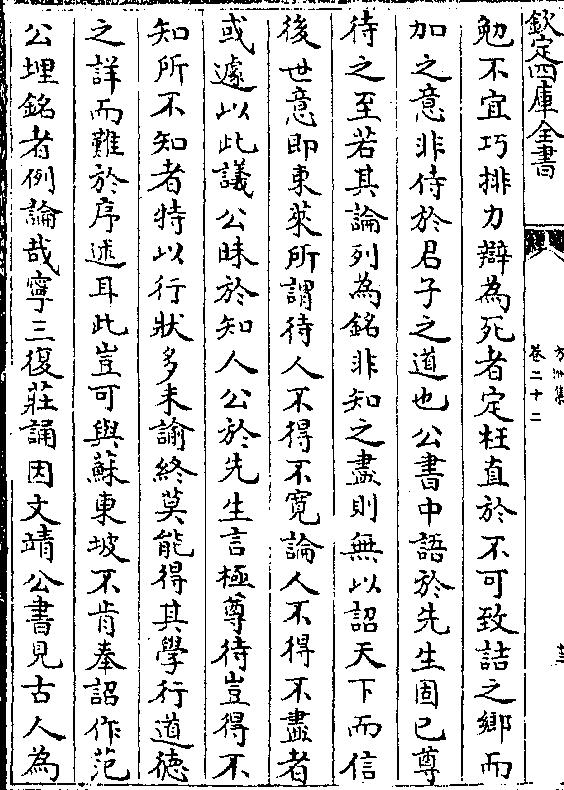 欽定四庫全書
方洲集
卷二十二
勉不宜巧排力辯為死者定枉直於不可致詰之鄉而
加之意非侍於君子之道也公書中語於先生固已尊
待之至若其論列為銘非知之盡則無以詔天下而信
後世意即東萊所謂待人不得不寛論人不得不盡者
或遽以此議公昧於知人公於先生言極尊待豈得不
知所不知者特以行狀多未諭終莫能得其學行道德
之詳而難於序述耳此豈可與蘇東坡不肯奉詔作范
公埋銘者例論哉寧三復莊誦因文靖公書見古人為